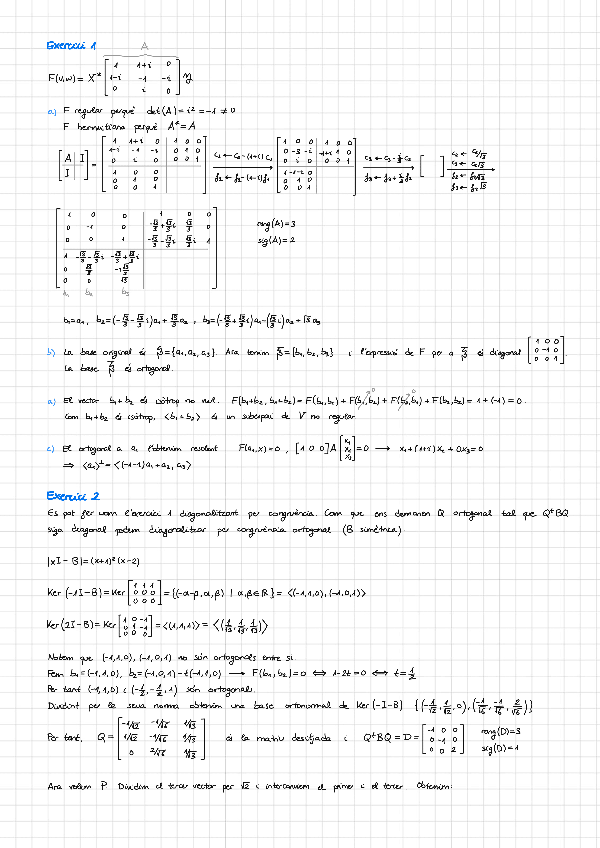 Exercici 1
A
F(v,w) = X* [1 1+i 0; 1-i -1 -i; 0 i 0] y
a) F regular perquè det(A) = i² = -1 ≠ 0
F hermitiana perquè A* = A
[A | I; I] = [1 1+i 0 | 1 0 0; 1-i -1 -i | 0 1 0; 0 i 0 | 0 0 1; 1 0 0; 0 1 0; 0 0 1] → [1 0 0 | 1 0 0; 0 -3 -i | -1+i 1 0; 0 i 0 | 0 0 1; 1 -1-i 0; 0 1 0; 0 0 1] → [ ] →
rang(A) = 3
sig(A) = 2
b₁ b₂ b₃
b) La base original és = {a₁, a₂, a₃}. Ara tenim = {b₁, b₂, b₃} i l'expressió de F per a és diagonal [1 0 0; 0 -1 0; 0 0 1].
La base és ortogonal.
a) El vector b₁+b₂ és isòtrop no nul. F(b₁+b₂, b₁+b₂) = F(b₁,b₁) + F(b₁,b₂) + F(b₂,b₁) + F(b₂,b₂) = 1 + (-1) = 0.
Com b₁+b₂ és isòtrop, ⟨b₁+b₂⟩ és un subespai de V no regular
c) El ortogonal a a₁ l'obtenim resolent F(a₁,x) = 0, [1 0 0] A [x₁; x₂; x₃] = 0 → x₁ + (1+i)x₂ + 0x₃ = 0
⇒ ⟨a₁⟩⊥ = ⟨(-1-i)a₁ + a₂, a₃⟩
Exercici 2
Es pot fer com l'exercici 1 diagonalitzant per congruència. Com que ens demanen Q ortogonal tal que QᵗBQ
sigui diagonal podem diagonalitzar per congruència ortogonal (B simètrica).
|xI - B| = (x+1)²(x-2)
Ker(-1I-B) = Ker [1 1 1; 0 0 0; 0 0 0] = {(-α-β, α, β) | α,β∈ℝ} = ⟨(-1,1,0), (-1,0,1)⟩
Ker(2I-B) = Ker [1 0 -1; 0 1 -1; 0 0 0] = ⟨(1,1,1)⟩ = ⟨(1/√3, 1/√3, 1/√3)⟩
Notem que (-1,1,0), (-1,0,1) no són ortogonals entre si.
Fem b₁ = (-1,1,0), b₂ = (-1,0,1) - t(-1,1,0) → F(b₁,b₂) = 0 ⟺ 1-2t = 0 ⟺ t = 1/2
Per tant (-1,1,0) i (-1/2, -1/2, 1) són ortogonals.
Dividint per la seva norma obtenim una base ortonormal de Ker(-I-B) {(-1/√2, 1/√2, 0), (-1/√6, -1/√6, 2/√6)}
Per tant, Q = [-1/√2 -1/√6 1/√3; 1/√2 -1/√6 1/√3; 0 2/√6 1/√3] és la matriu desitjada i QᵗBQ = D = [-1 0 0; 0 -1 0; 0 0 2] rang(D) = 3
sig(D) = 1
Ara volem P. Dividim el tercer vector per √2 i intercanviem el primer i el tercer. Obtenim: